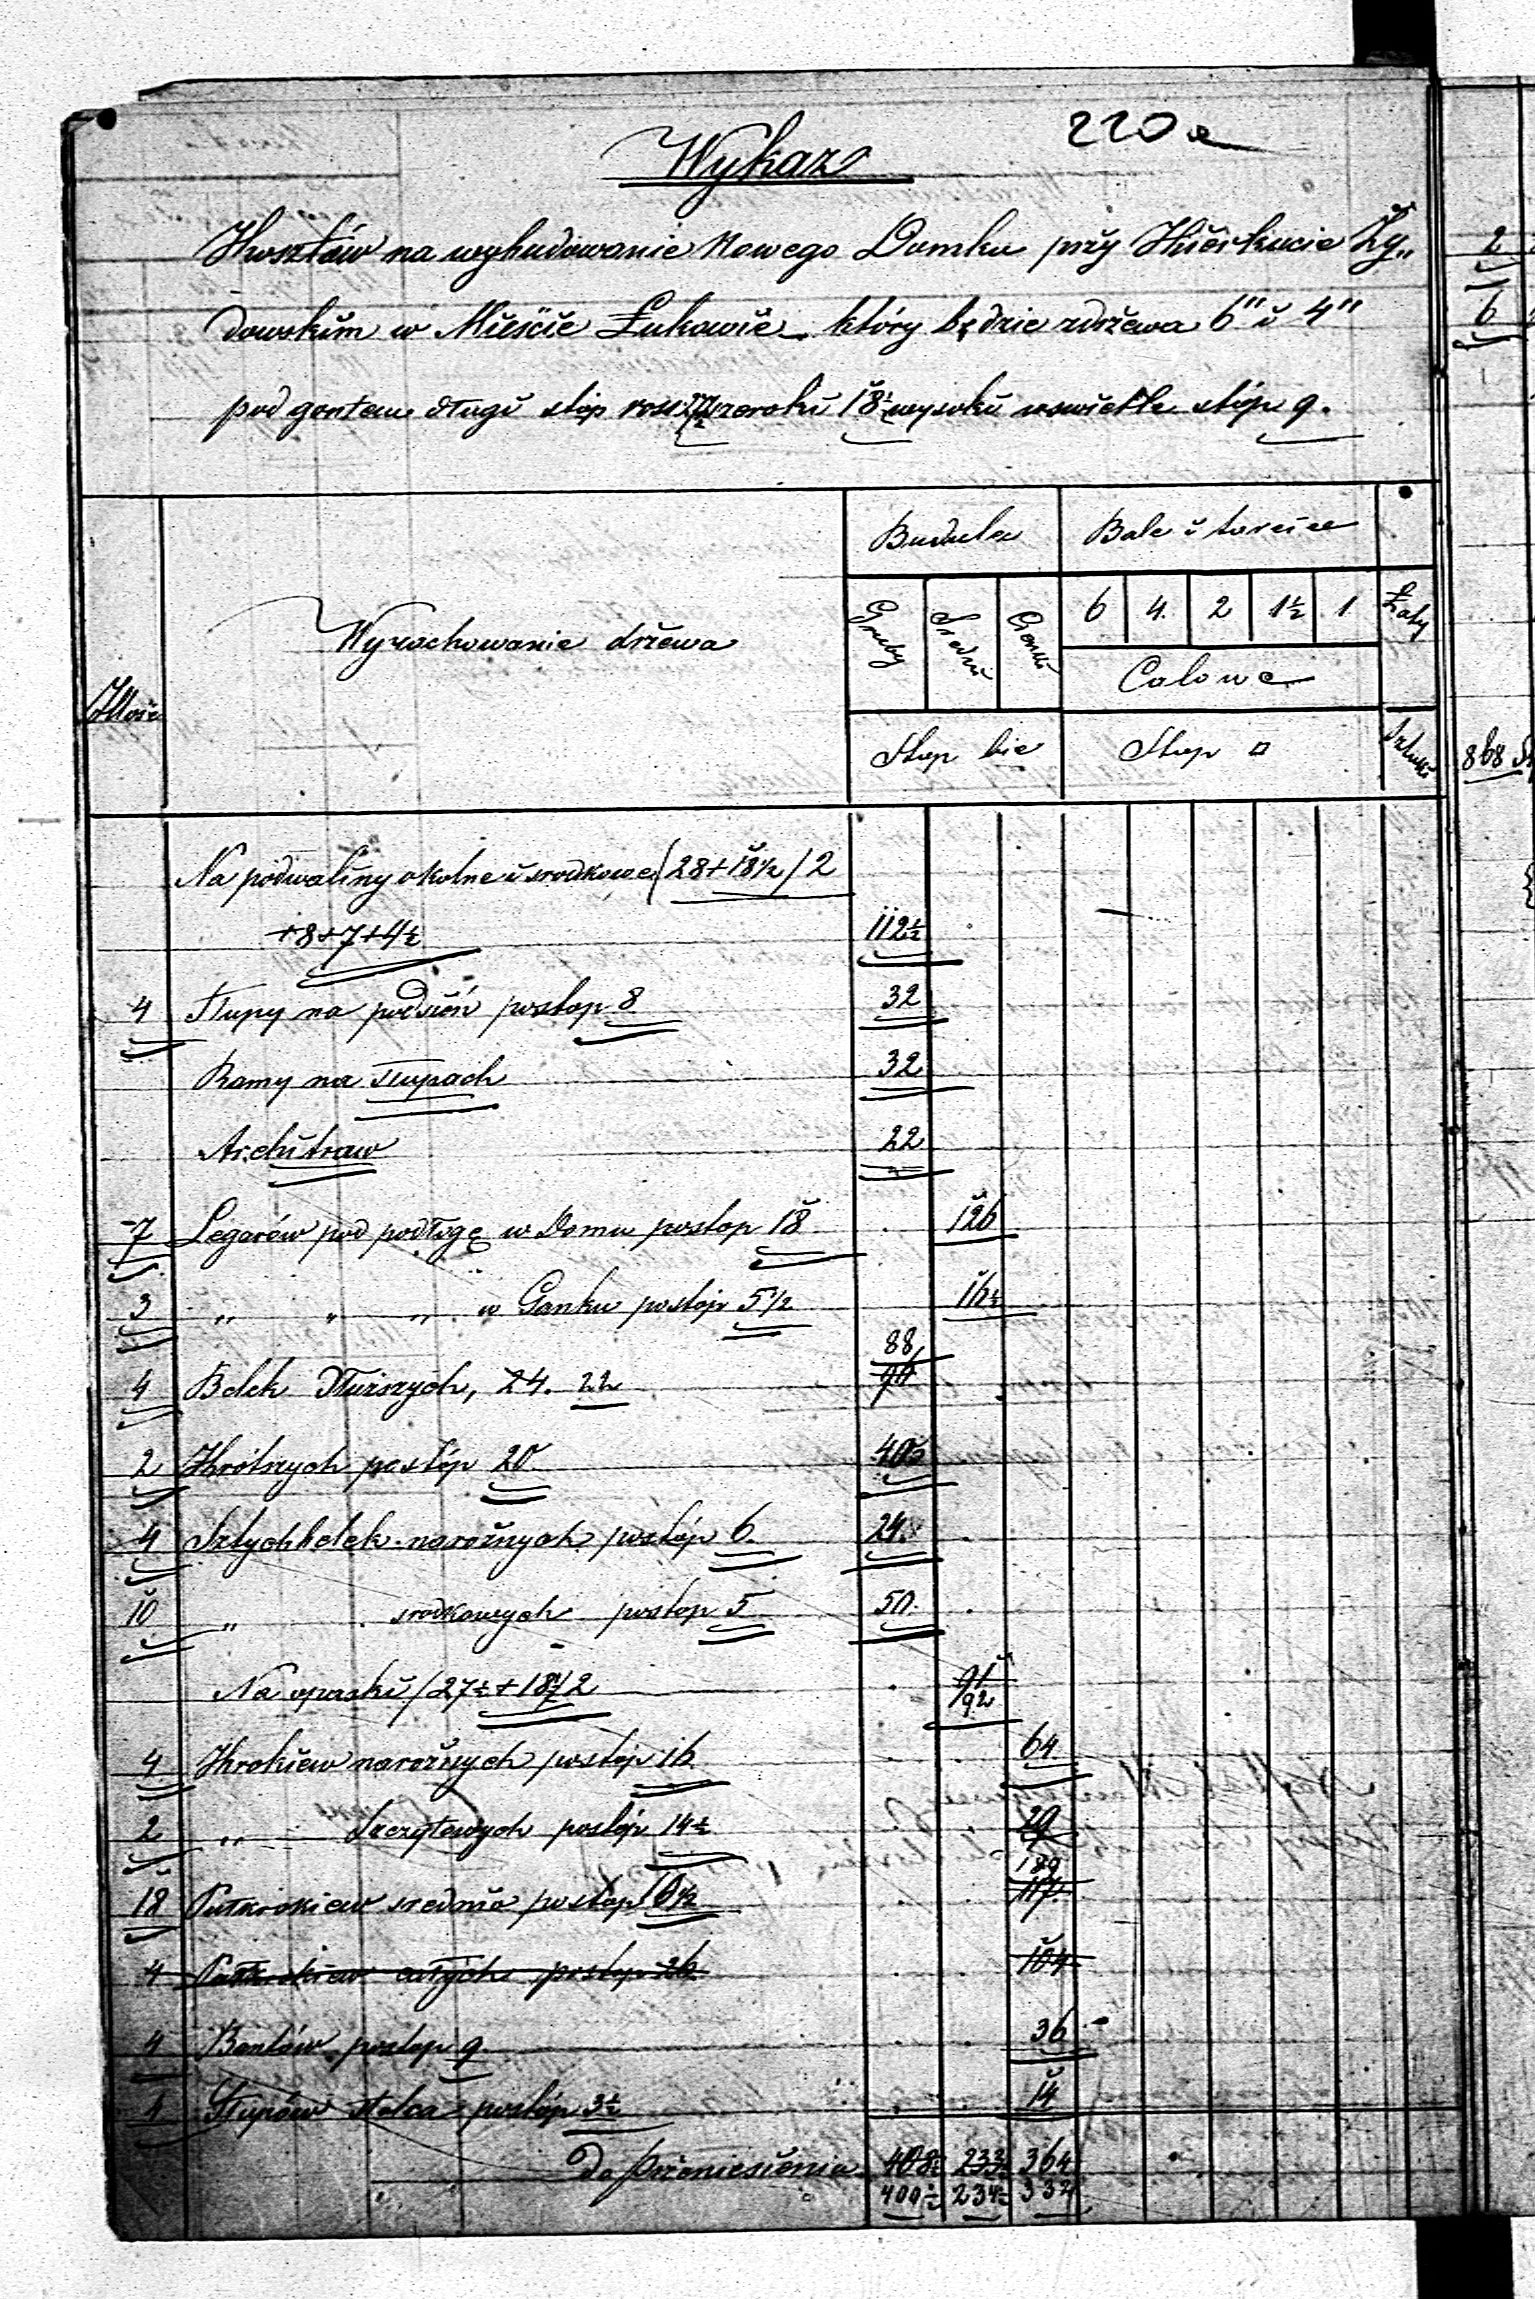 220 e
Wykaz
Kosztów na wybudowanie Nowego Domku przy Kierkucie Ży„
dowskim w Mieście Łukowie który będzie zdrzewa 6" i 4"
pod gontem długi stóp szeroki 18½ wysoki wświetle stóp 9.
Ilość
Wyrachowanie drzewa
Budulcu
Bale i tarcice
Gruby
Średni
Cienki
6 4. 2 1½ 1
Łaty
Calowe
Stop bie
Stop □
Sztuki
Na podwaliny okolne i srodkowe (28+18½)2
+8+7+4½ 112½
4 Słupy na podsień postop 8 32
Ramy na słupach 32
Architraw 22
7 Legarów pod podłogę w Domu postop 18 126
3 „ „ „ w Ganku postop 5½ 16½
88
4 Belek Dłuższych, 24. 22 96
2 Krótszych postóp 20 40
4 Sztychbelek narożnych postóp 6. 24.
10 „ srodkowych postop 5 50.
Na opaski (27½+18½)2 91
92
4 Krokiew narożnych postóp 16 64
2 „ Szczytowych postóp 14½ 29
189
18 Pułkrokiew srednio postop 6½ 117
4 Pułkrokiew całych postop 26 104
4 Bantów postop 9 36
4 Słupów stolca postóp 3½ 14
Do Przeniesienia 408½ 233½ 364
400½ 234½ 332
2
6
868